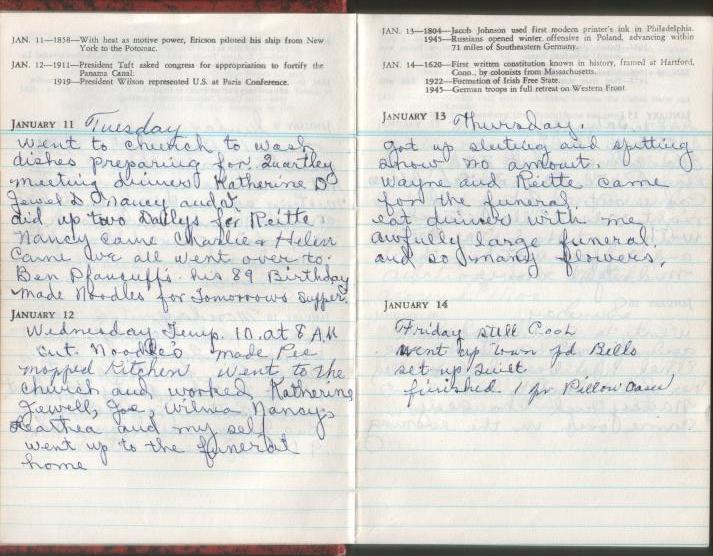 JAN. 11—1838—With heat as motive power, Ericson piloted his ship from New
York to the Potomac.
JAN. 12—1911—President Taft asked congress for appropriation to fortify the
Panama Canal.
1919—President Wilson represented U.S. at Paris Conference.
JANUARY 11 Tuesday
went to church to wash
dishes preparing for Quartley
meeting dinner Katherine D
Jewel D Nancy and I.
did up two Daileys for Reitte
Nancy came Charlie & Helen
Came we all went over to
Ben his 89 Birthday
made Noodles for Tomorrows supper.
JANUARY 12
Wednesday Temp. 10. at 8 AM
cut. Noodles made Pie
mopped Kitchen went to the
church and worked Katherine
Jewell, Joe, Wilma Nancy's
and my self
went up to the funeral
home
JAN. 13—1804—Jacob Johnson used first modern printer's ink in Philadelphia.
1945—Russians opened winter offensive in Poland, advancing within
71 miles of Southeastern Germany.
JAN. 14—1620—First written constitution known in history, framed at Hartford,
Conn., by colonists from Massachusetts.
1922—Formation of Irish Free State.
1945—German troops in full retreat on Western Front.
JANUARY 13 Thursday.
got up sleeting and spitting
snow no amount.
Wayne and Reitte came
for the funeral.
eat dinner with me
awfully large funeral.
and so many flowers.
JANUARY 14
Friday still Cool
went up town pd Bells
set up quilt
finished 1 pr Pillow Cases